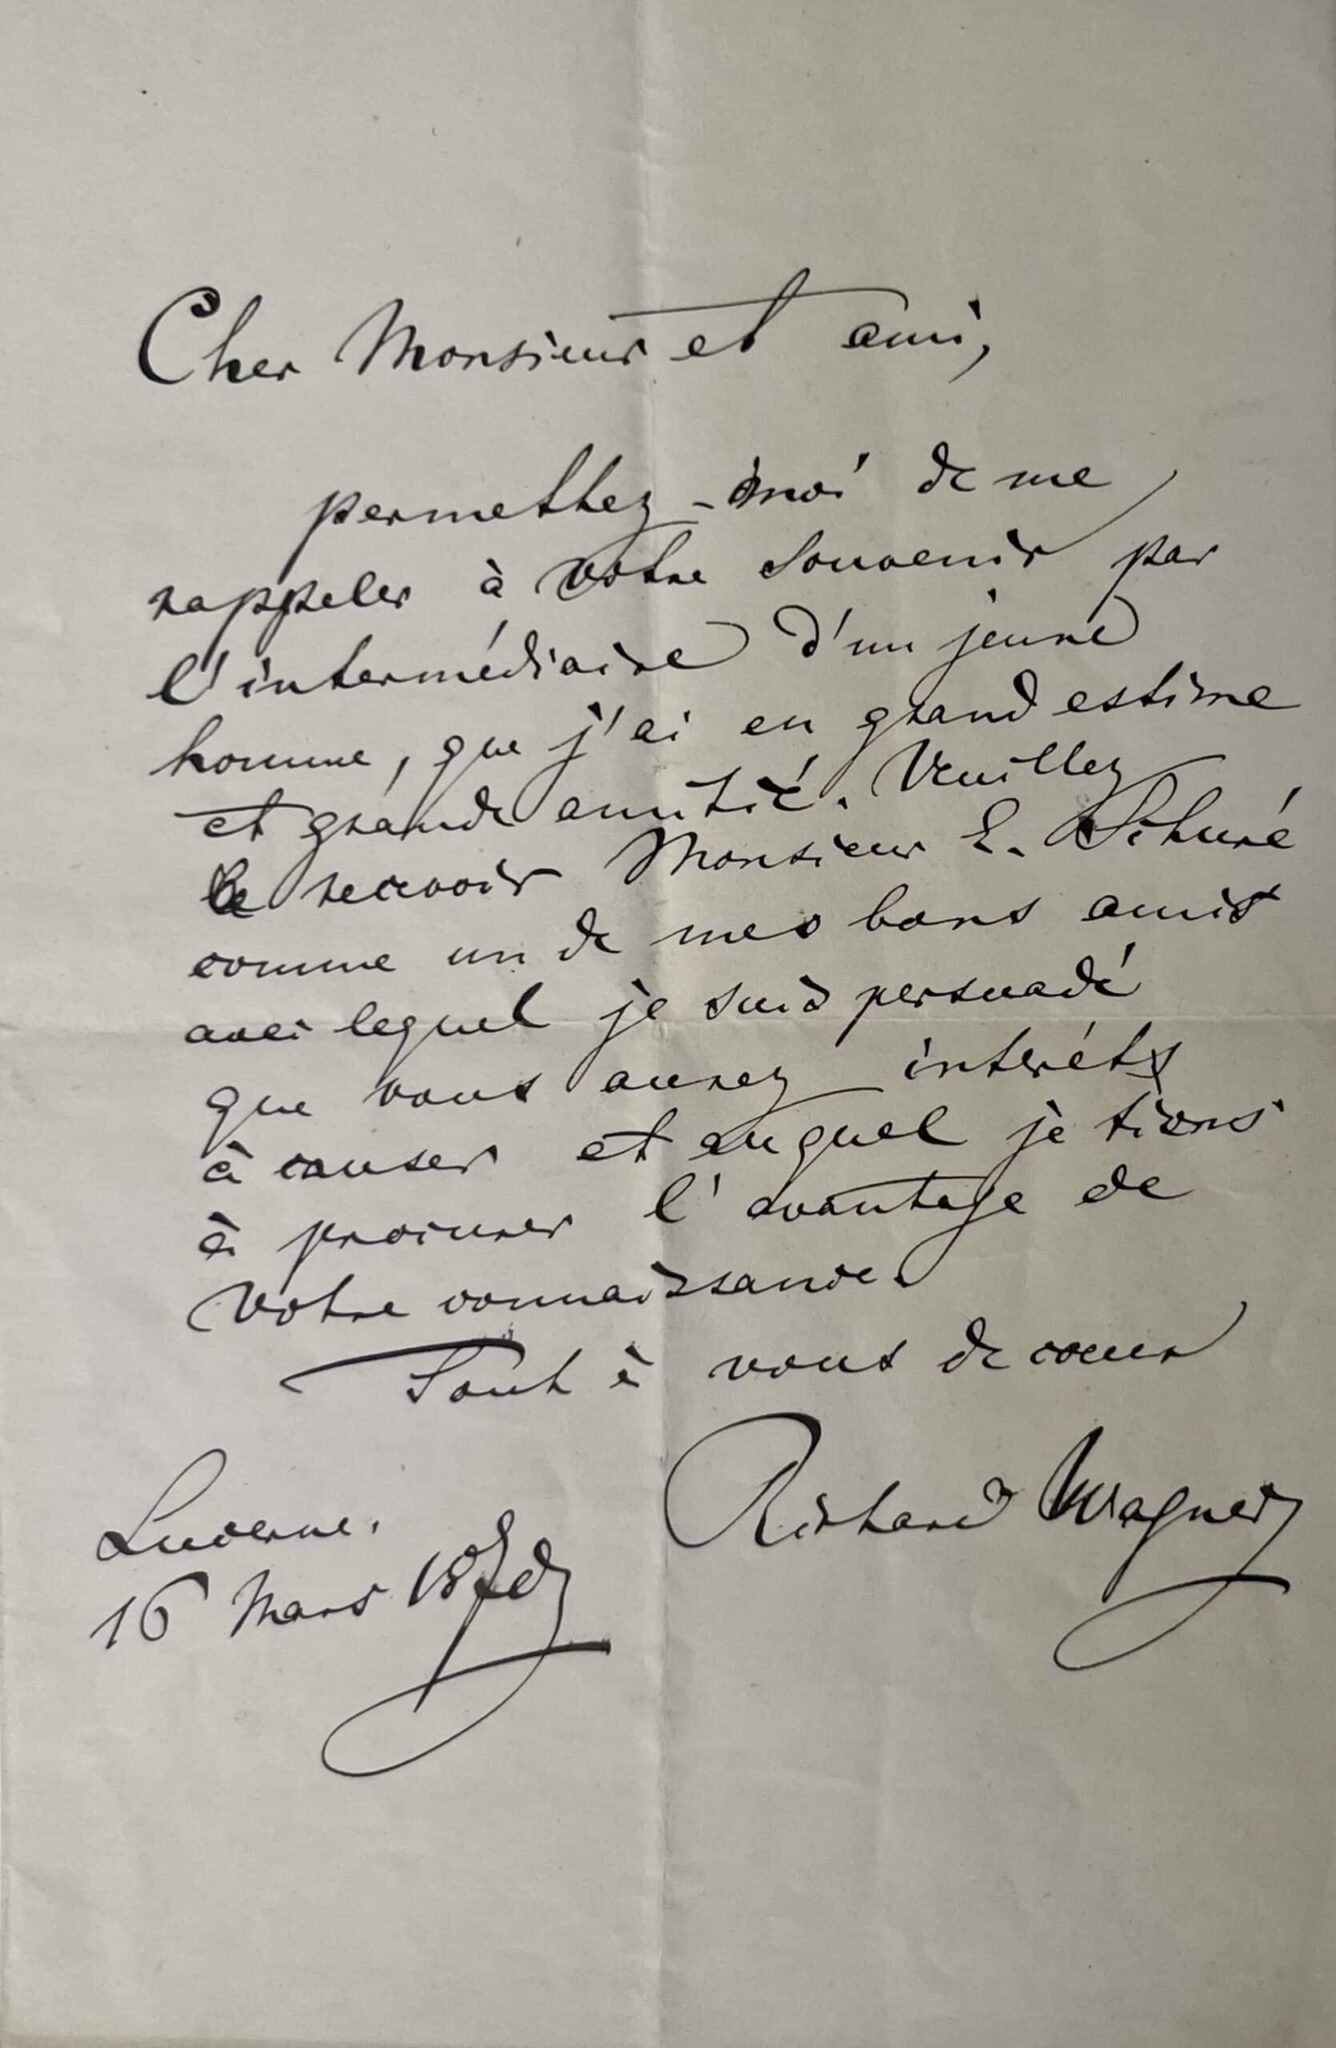 Cher Monsieur et ami,
permettez-moi de me
rappeler à votre souvenir par
l'intermédiaire d'un jeune
homme, que j'ai en grand estime
et grande amitié. Veuillez
le recevoir Monsieur E. Schuré
comme un de mes bons amis
avec lequel je suis persuadé
que vous aurez intérêt
à causer et auquel je tiens
à procurer l'avantage de
votre connaissance.
Tout à vous de cœur
Richard Wagner
Lucerne.
16 Mars 1870